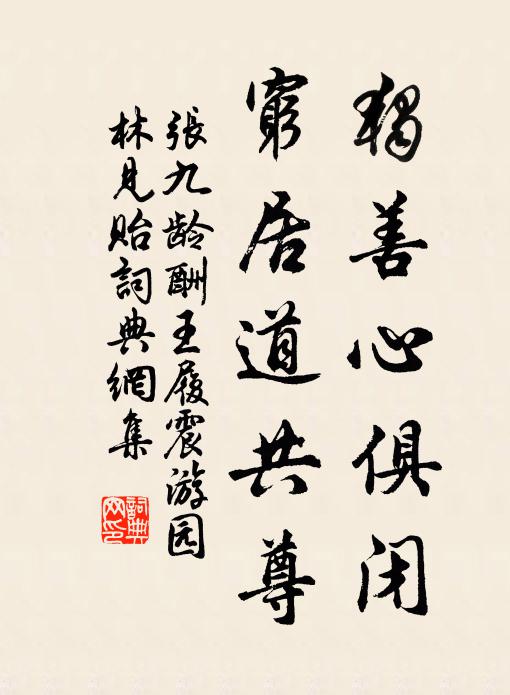 獨善心俱闭
窮居道共尊
張九龄酬王履震游园
林見贻詞典網集
詞典
网印